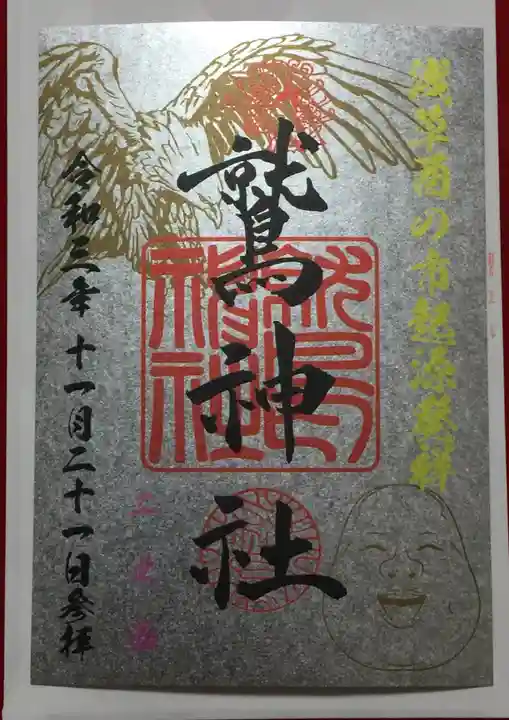 浅草酉の市起源発祥
鷲神社
鷲神社
令和三年十一月二十一日参拝